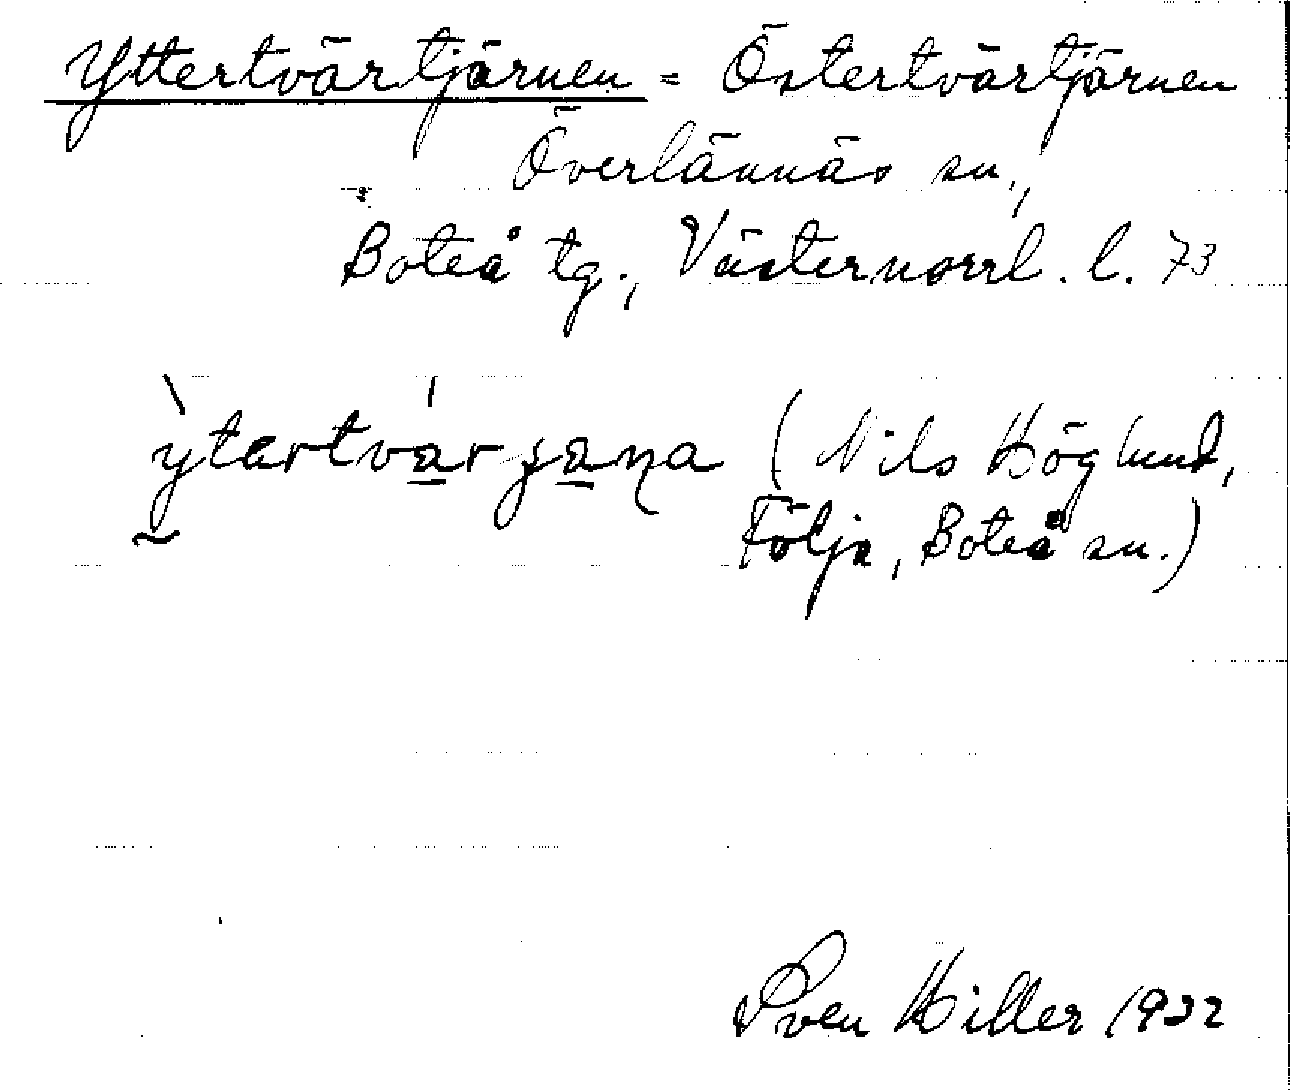 Yttertvärtjärnen = Östertvärtjärnen
Överlännäs sn.,
Boteå tg., Västernorrl. l. 73
ỳtərtvár ȷa̲ɳa (Nils Höglund,
Följa, Boteå sn.)
Sven Hiller 1932